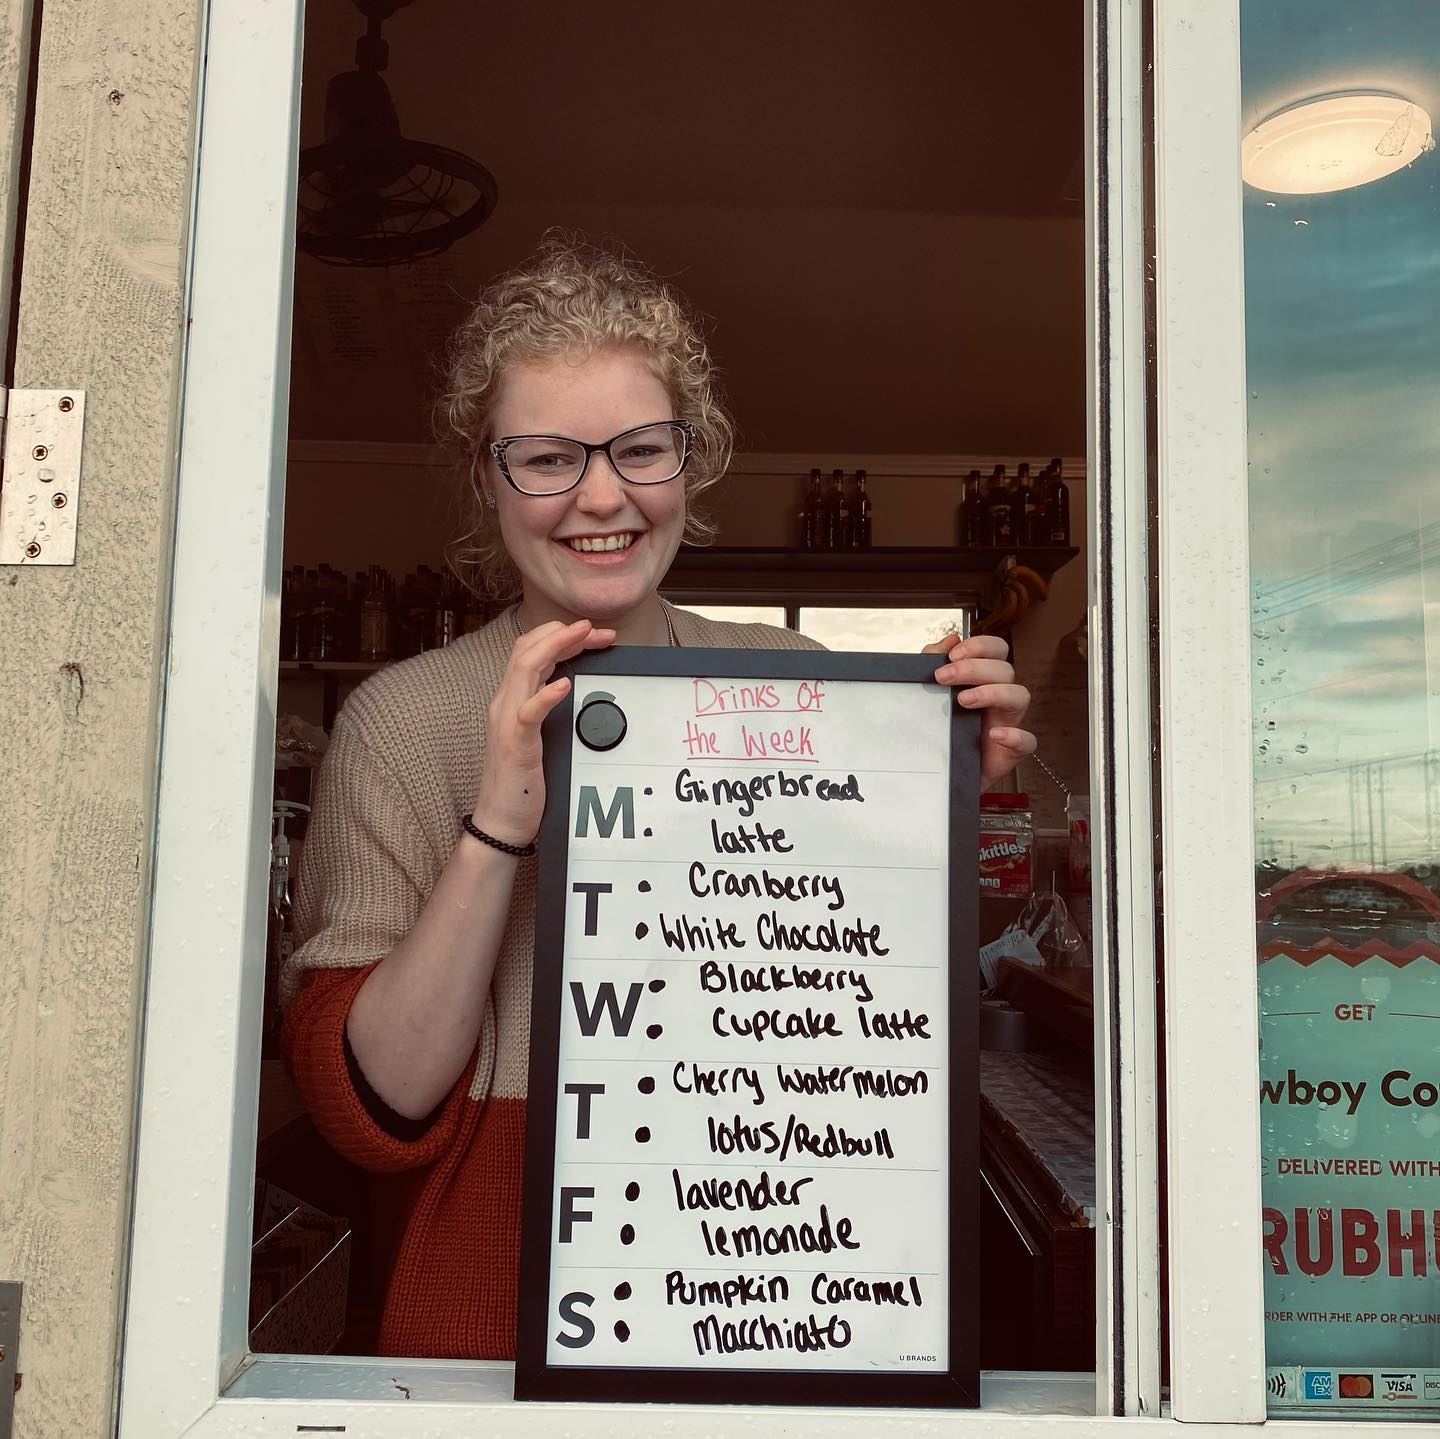 Drinks Of
the Week
M: Gingerbread
latte
T: Cranberry
White Chocolate
W: Blackberry
Cupcake latte
T: Cherry Watermelon
lotus/Redbull
F: lavender
lemonade
S: Pumpkin Caramel
Macchiato
U BRANDS
Skittles
GET
wboy Co
DELIVERED WITH
RUBH
RDER WITH THE APP OR ONLINE
AM
EX
VISA
DISC